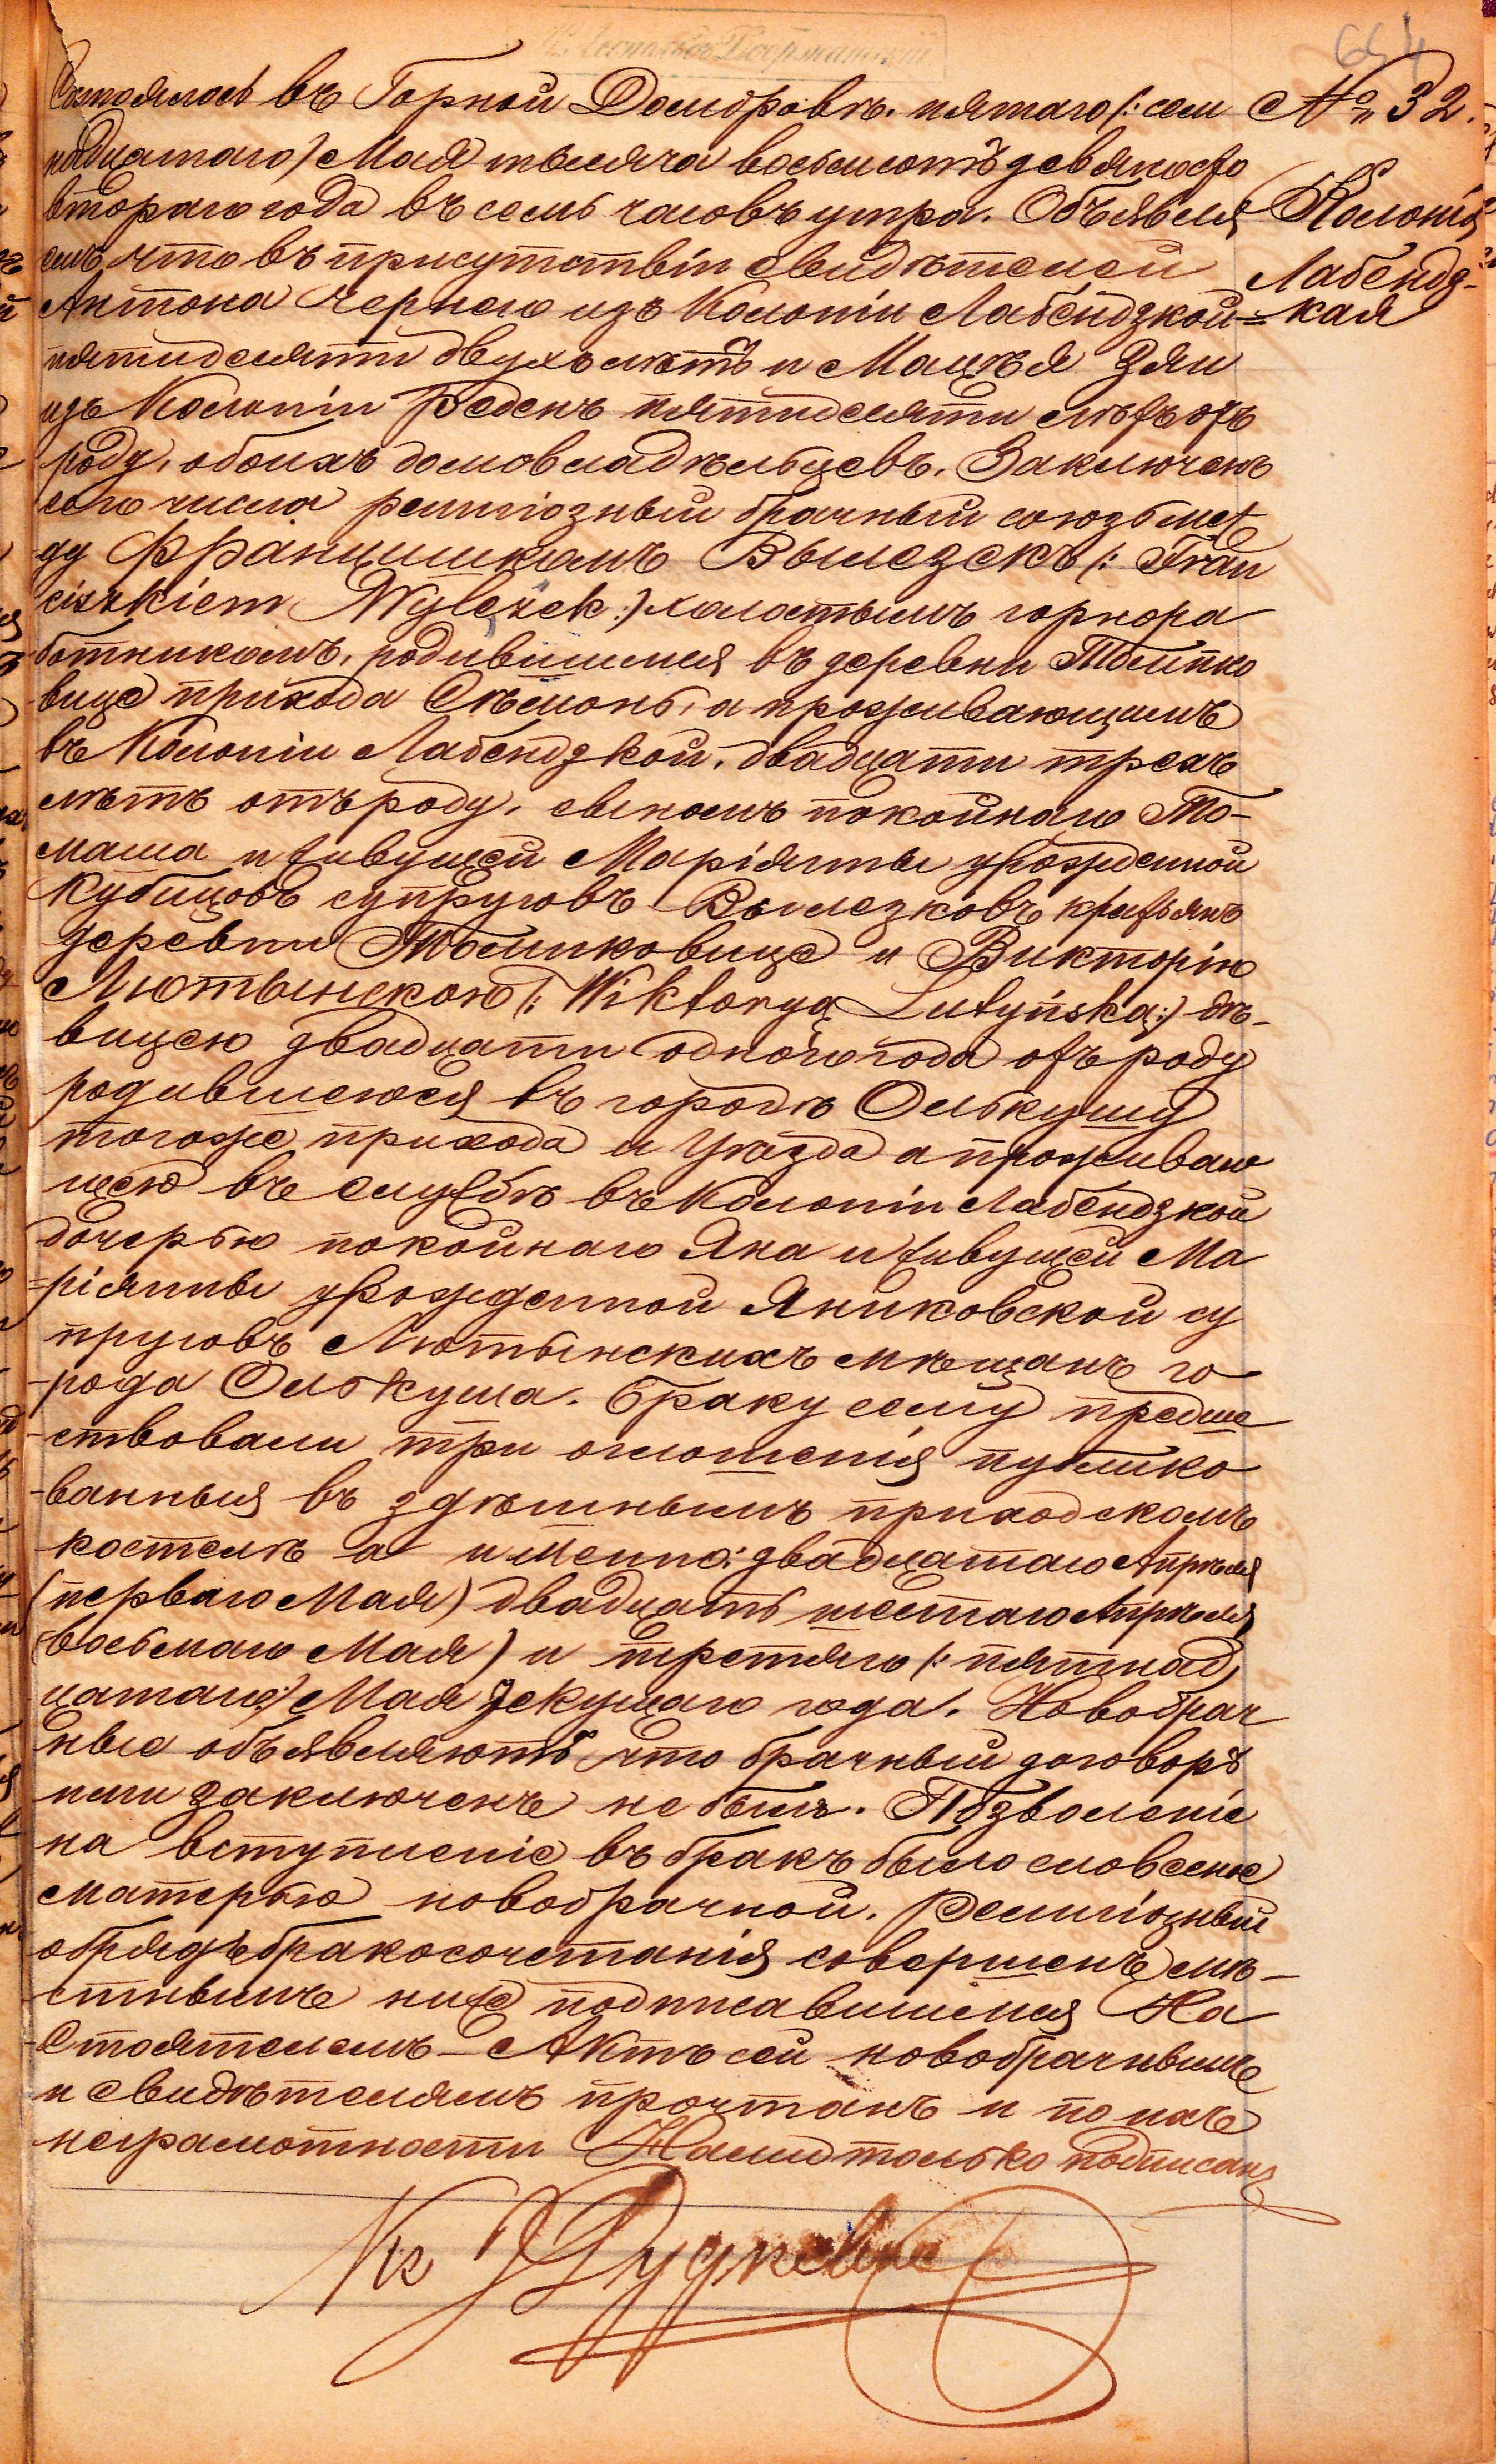 654
№ 32.
Колонія
Лабендз-
кая
Состоялось въ Горной Домбровѣ, пятаго (: сем
надцатаго) Мая тысяча восемьсотъ девяносто
втораго года въ семь часовъ утра. Объявля
емъ, что въ присутствіи свидѣтелей
Антона Чернего изъ Колоніи Лабендзкой=
пятидесяти двухъ лѣтъ и Мацѣя Зяи
изъ Колоніи Реденъ пятидесяти лѣтъ отъ
роду, обоихъ домовладѣльцевъ. Заключенъ
сего числа религіозный брачный союзъ меж
ду Францишкомъ Вылезекъ (: Fran
ciszkiem Wylezek :) холостымъ горнора
ботникомъ, родившимся въ деревни Толпко
вице прихода Сѣмонь, а проживающимъ
въ Колоніи Лабендзкой, двадцати трехъ
лѣтъ отъ роду, сыномъ покойнаго То-
маша и живущей Маріянны урожденной
Кубицовъ супруговъ Вылезковъ крестьянъ
деревни Томпковице и Викторію
Лютынскою (: Wiktoryą Lutyńską :) дѣ-
вицею двадцати одного года отъ роду
родившеюся въ городѣ Олькушу
тогоже прихода и Уѣзда а проживаю
щею въ службѣ въ Колоніи Лабендзкой
дочерью покойнаго Яна и живущей Ма
=ріянны урожденной Яниковской су
пруговъ Лютынскихъ мѣщанъ го
-рода Олькуша. Браку сему предше
-ствовали три оглошенія публико
-ванныя въ здѣшнымъ приходскомъ
костелѣ а именно: двадцатаго Апрѣля
(перваго Мая) двадцать шестаго Апрѣля
(восьмаго Мая) и третяго (: пятнад
цатаго:) Мая текущаго года. Новобрач
ные объявляютъ что брачный договоръ
ими заключенъ не былъ. Позволеніе
на вступленіе въ бракъ было словесное
матерью новобрачной. Религіозный
обрядъ бракосочетанія совершенъ мѣ-
-стнымъ ниже подписавшимся На
стоятелемъ- Актъ сей новобрачнымъ
и свидѣтелямъ прочтанъ и по ихъ
неграмотности Нами только подписанъ
Кс